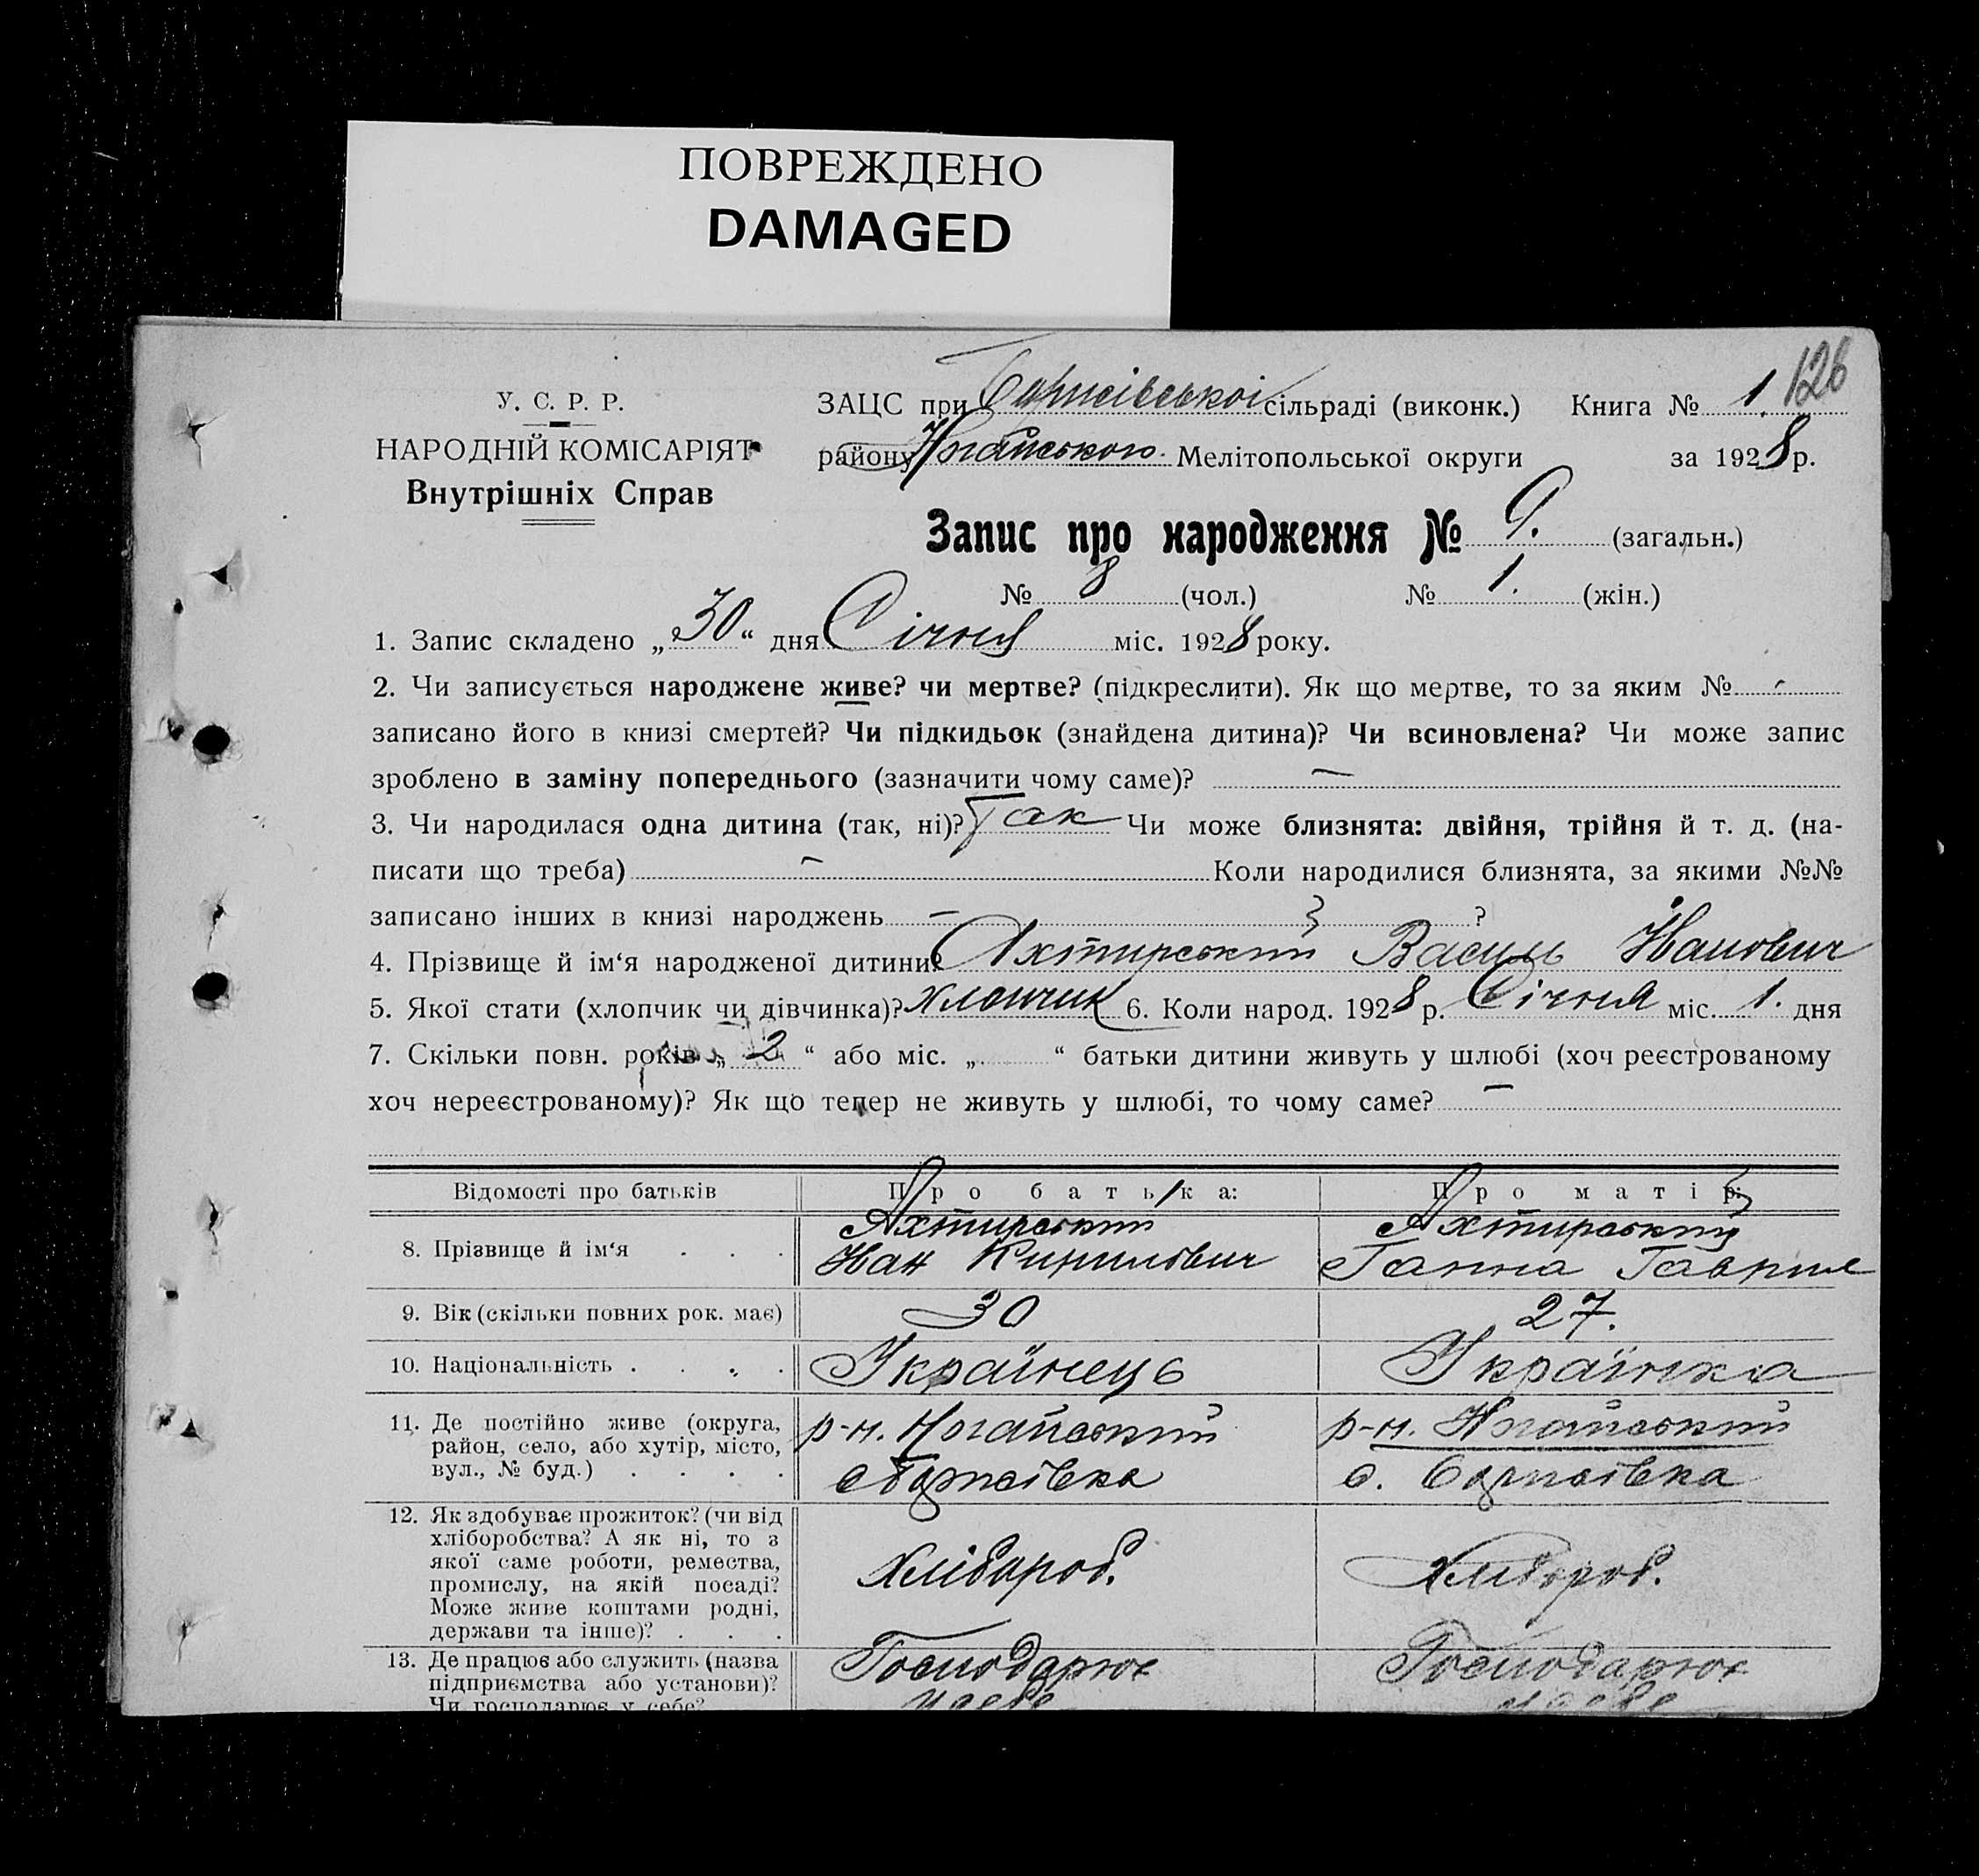 ПОВРЕЖДЕНО
DAMAGED
126
У. С. Р. Р.
НАРОДНІЙ КОМІСАРІЯТ
Внутрішніх Справ
ЗАЦС при Борисівської сільраді (виконк.) Книга № 1.
району Ногайського Мелітопольської округи за 1928 р.
Запис про народження № 9. (загальн.)
№ 8 (чол.) № 1. (жін.)
1. Запис складено „30“ дня Січня міс. 1928 року.
2. Чи записується народжене живе? чи мертве? (підкреслити). Як що мертве, то за яким № -
записано його в книзі смертей? Чи підкидьок (знайдена дитина)? Чи всиновлена? Чи може запис
зроблено в заміну попереднього (зазначити чому саме)? —
3. Чи народилася одна дитина (так, ні)? Так Чи може близнята: двійня, трійня й т. д. (на-
писати що треба) — Коли народилися близнята, за якими №№
записано інших в книзі народжень — ?
4. Прізвище й ім‘я народженої дитини? Ахтирський Василь Іванович
5. Якої стати (хлопчик чи дівчинка)? хлопчик 6. Коли народ. 1928 р. Січня міс. 1. дня
7. Скільки повн. років „ 2 “ або міс. „ “ батьки дитини живуть у шлюбі (хоч реєстрованому
хоч нереєстрованому)? Як що тепер не живуть у шлюбі, то чому саме? —
Відомості про батьків Про батька: Про матір:
8. Прізвище й ім‘я . . . Ахтирський Іван Кирилович Ахтирський Ганна Гаврил
9. Вік (скільки повних рок. має) 30 27.
10. Національність . . . . Українець Українка
11. Де постійно живе (округа, р-н. Ногайський р-н. Ногайський
район, село, або хутір, місто, с Борисівка с. Борисівка
вул., № буд.) . . . .
12. Як здобуває прожиток? (чи від
хліборобства? А як ні, то з
якої саме роботи, ремества, Хлібороб. Хлібороб.
промислу, на якій посаді?
Може живе коштами родні,
держави та інше)? . . .
13. Де працює або служить (назва Господарює Господарює
підприємства або установи)? у себе у себе
Чи господарює у себе?